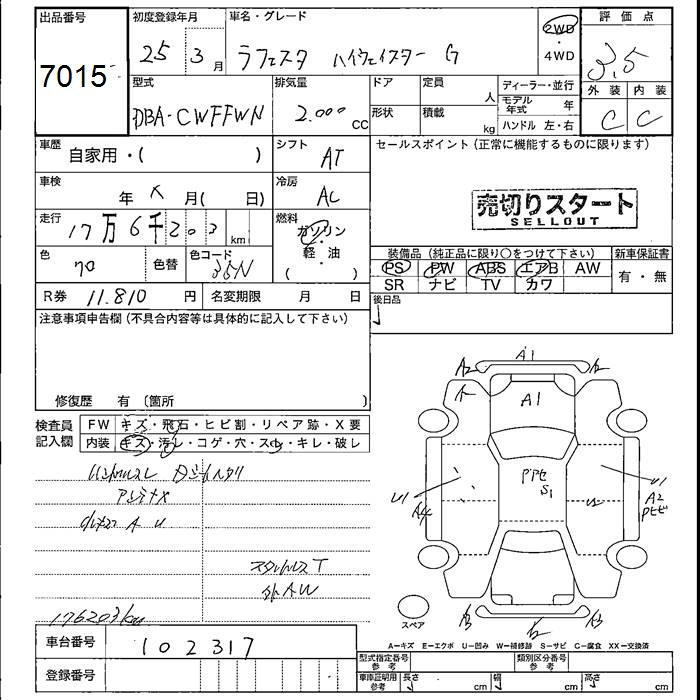 出品番号
7015
初度登録年月
25 3 月
車名・グレード
ラフェスタ ハイウェイスター G
2WD
・
4WD
評価点
3.5
外装 内装
C C
型式
DBA-CWFFWN
排気量
2.000 CC
ドア
定員
人
形状
積載
kg
ディーラー・並行
モデル年式 年
ハンドル 左・右
車歴
自家用・( )
シフト
AT
セールスポイント(正常に機能するものに限ります)
車検
年 月( 日)
冷房
AC
売切りスタート
SELLOUT
走行
17万6千203 km
燃料
ガソリン
・
軽・油
( )
色
色替
色コード
36N
装備品(純正品に限り○をつけて下さい)
新車保証書
PS PW ABS エアB AW
SR ナビ TV カワ
有・無
R券 11.810 円
名変期限 月 日
後日品
注意事項申告欄(不具合内容等は具体的に記入して下さい)
修復歴 有 〔箇所 〕
検査員
記入欄
FW キズ・飛石・ヒビ割・リペア跡・X要
内装 キズ・汚レ・コゲ・穴・スレ・キレ・破レ
アンテナX
176203km
A1
A2
A1
S1
U1
A4
U1
A2
スペア
A=キズ E=エクボ U=凹み W=補修跡 S=サビ C=腐食 XX=交換済
車台番号
102317
登録番号
型式指定番号
参考
類別区分番号
参考
車庫証明用
参考
長さ cm
幅 cm
高さ cm